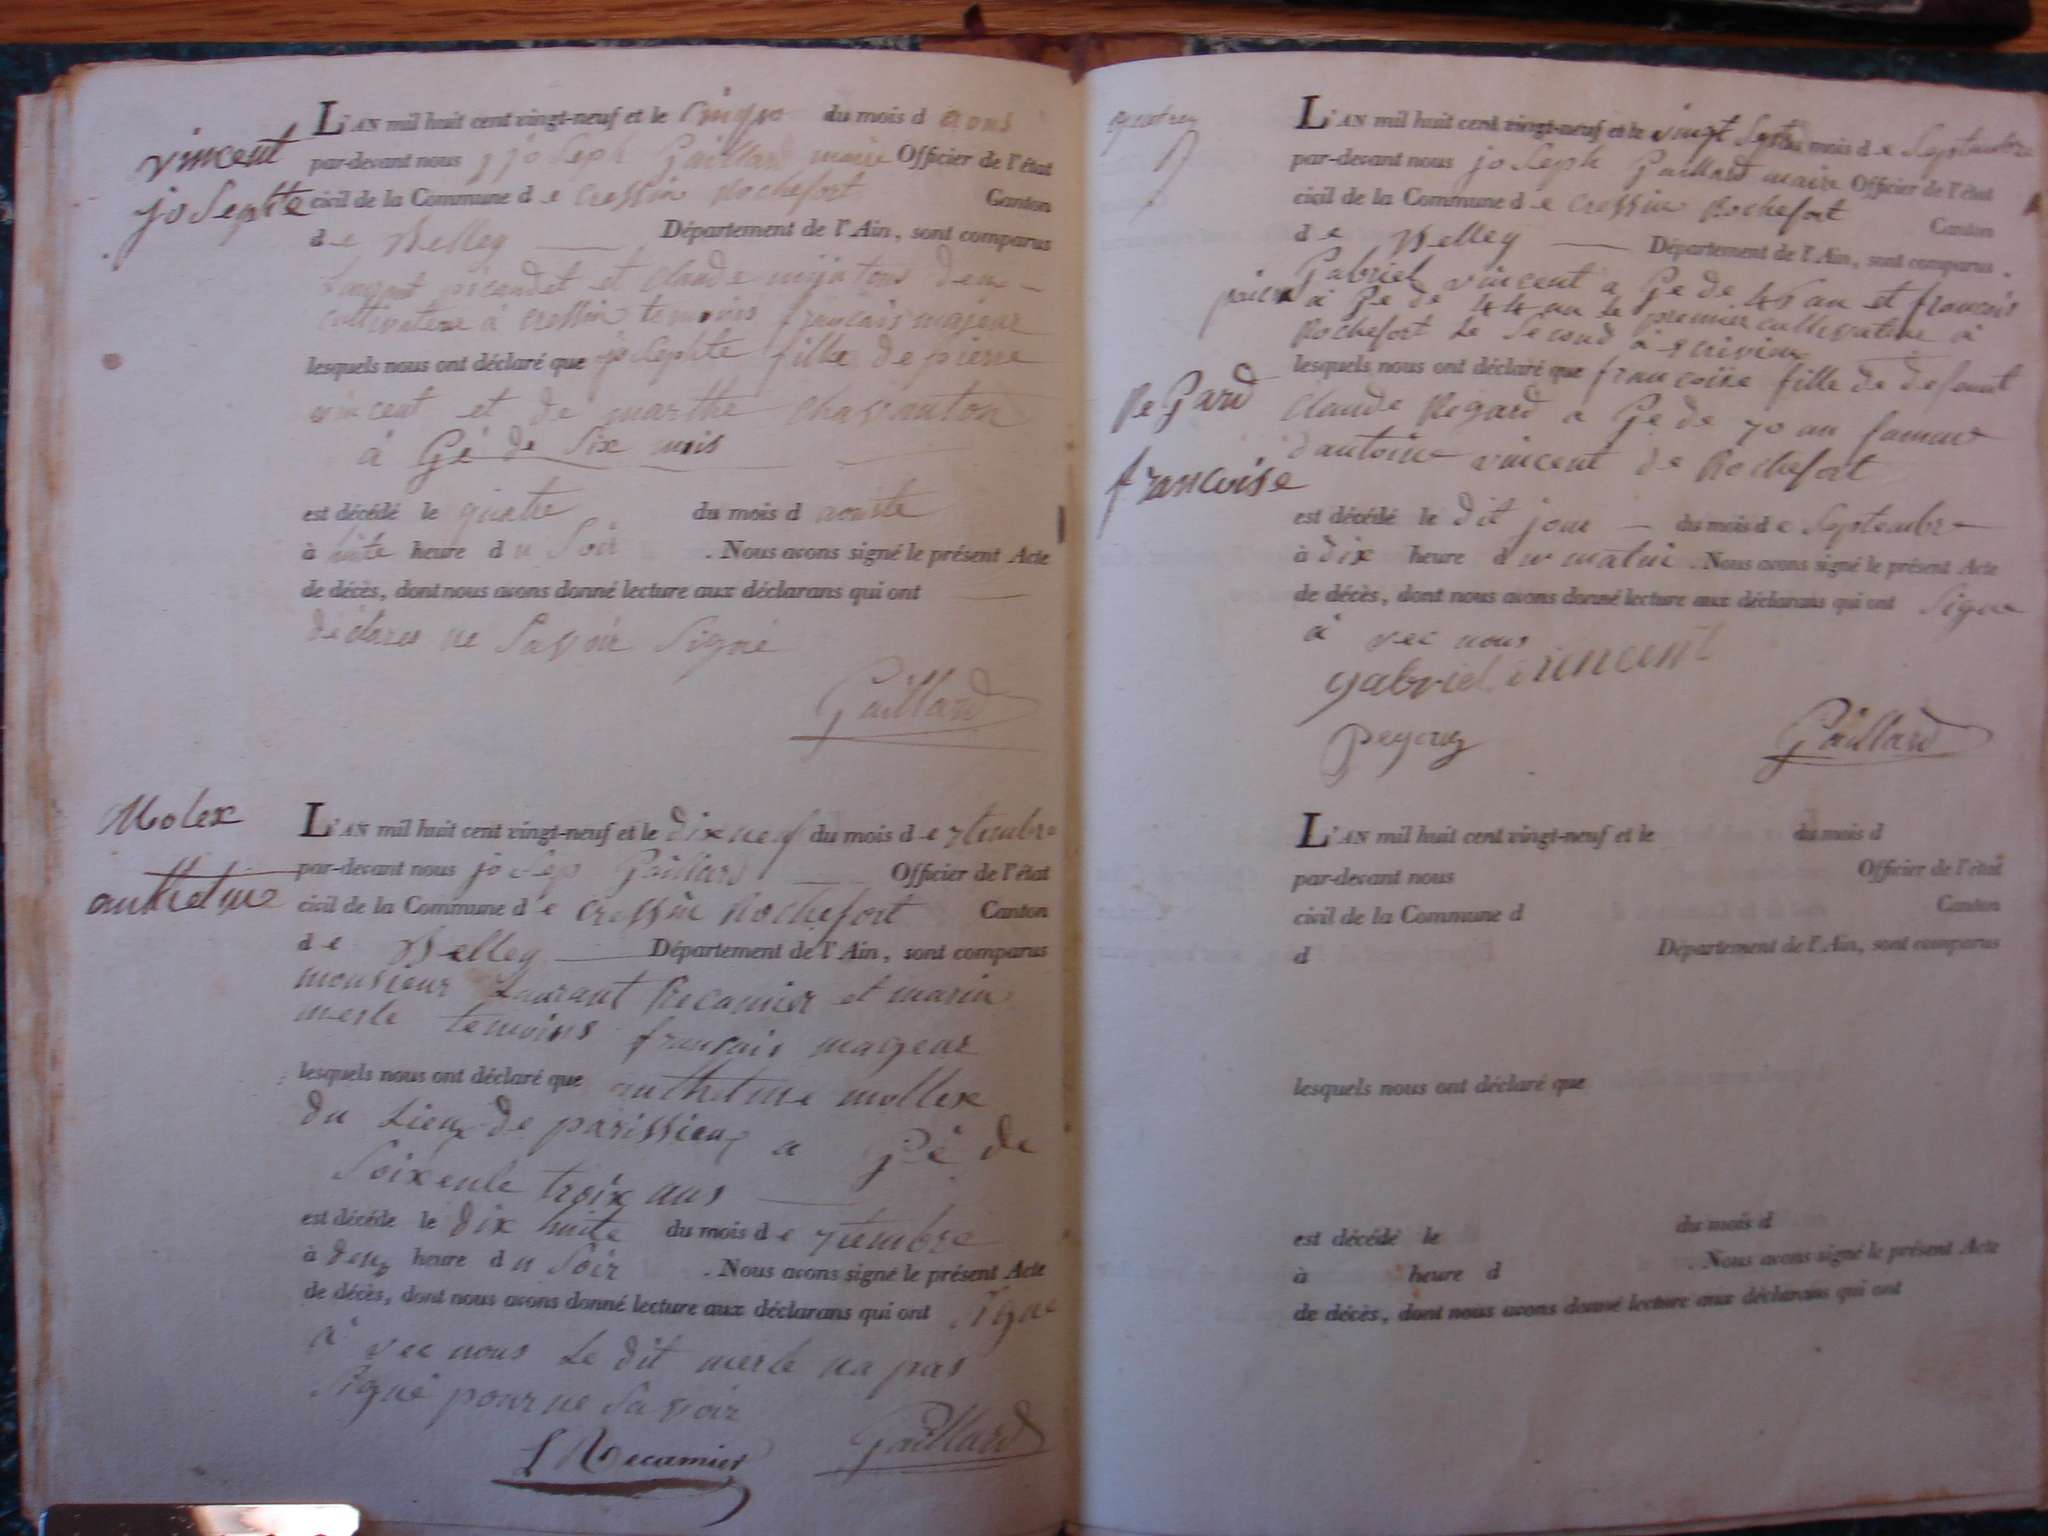 vincent
josephte
L'AN mil huit cent vingt-neuf et le cinq du mois d aous
par-devant nous joseph Gaillard maire Officier de l'état
civil de la Commune d e Cressin Rochefort Canton
d e Belley Département de l'Ain, sont comparus
et claude tous deux
cultivateur à cressin temoins francais majeur
lesquels nous ont déclaré que josephte fille de pierre
vincent et de marthe
a Gé de six mois
est décédé le quatre du mois d aouste
à huite heure d u Soir . Nous avons signé le présent Acte
de décès, dont nous avons donné lecture aux déclarans qui ont
déclares ne Savoir Signé
Gaillard
Molex
anthelme
L'AN mil huit cent vingt-neuf et le dix neuf du mois d e 7tembre
par-devant nous josep Gaillard Officier de l'état
civil de la Commune d e Cressin Rochefort Canton
d e Belley Département de l'Ain, sont comparus
monsieur Laurant Recamier et marin
merle temoins francais mageur
lesquels nous ont déclaré que anthelme mollex
du Lieux de parissieux a Gé de
Soixente troix ans
est décédé le dix huite du mois d e 7tembre
à deux heure d u Soir . Nous avons signé le présent Acte
de décès, dont nous avons donné lecture aux déclarans qui ont Signe
a vec nous Le dit merle na pas
Signé pour ne Savoir
L Recamier Gaillard
L'AN mil huit cent vingt-neuf et le vingt Sept du mois d e Septembre
par-devant nous joseph Gaillard maire Officier de l'état
civil de la Commune d e Cressin Rochefort Canton
d e Belley Département de l'Ain, sont comparus
Gabriel vincent a Ge de 46 an et francois
a Ge de 44 an Le premier cultivateur a
Rochefort Le Second à
Regard
francoise
lesquels nous ont déclaré que francoise fille de defunt
Claude Regard a Ge de 70 an famme
d'antoine vincent de Rochefort
est décédé le dit jour du mois d e Septembre
à dix heure d u matin . Nous avons signé le présent Acte
de décès, dont nous avons donné lecture aux déclarans qui ont Signe
a vec nous
gabriel vincent
Gaillard
L'AN mil huit cent vingt-neuf et le du mois d
par-devant nous Officier de l'état
civil de la Commune d Canton
d Département de l'Ain, sont comparus
lesquels nous ont déclaré que
est décédé le du mois d
à heure d . Nous avons signé le présent Acte
de décès, dont nous avons donné lecture aux déclarans qui ont